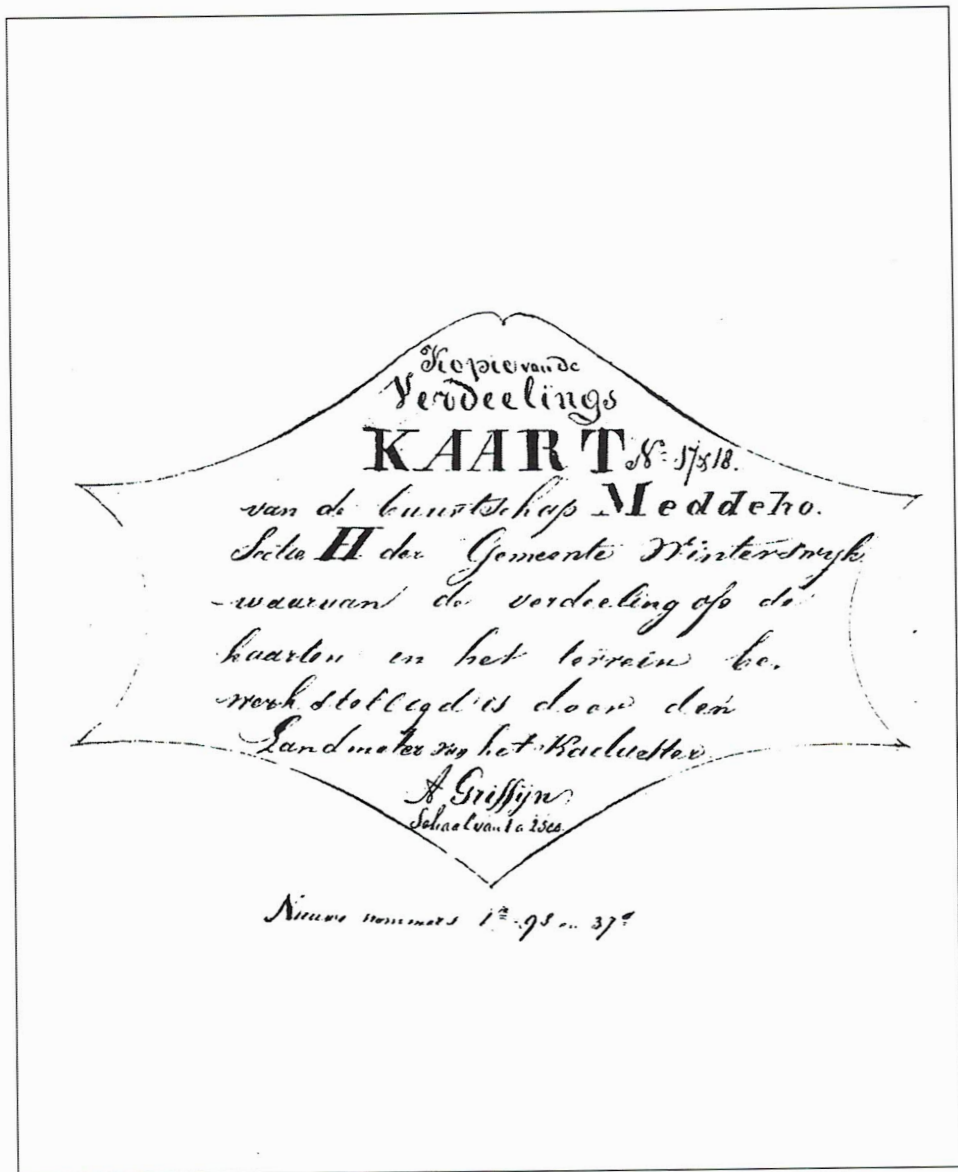 Kopie van de
Verdeelings
KAART No. 17 & 18.
van de buurtschap Meddeho.
Sectie H der Gemeente Winterswyk
waarvan de verdeeling op de
kaarten en het terrein be-
werkstelligd is door den
Landmeter van het Kadaster
A Griffijn
Schaal van 1 a 2500
Nieuwe nommers 1